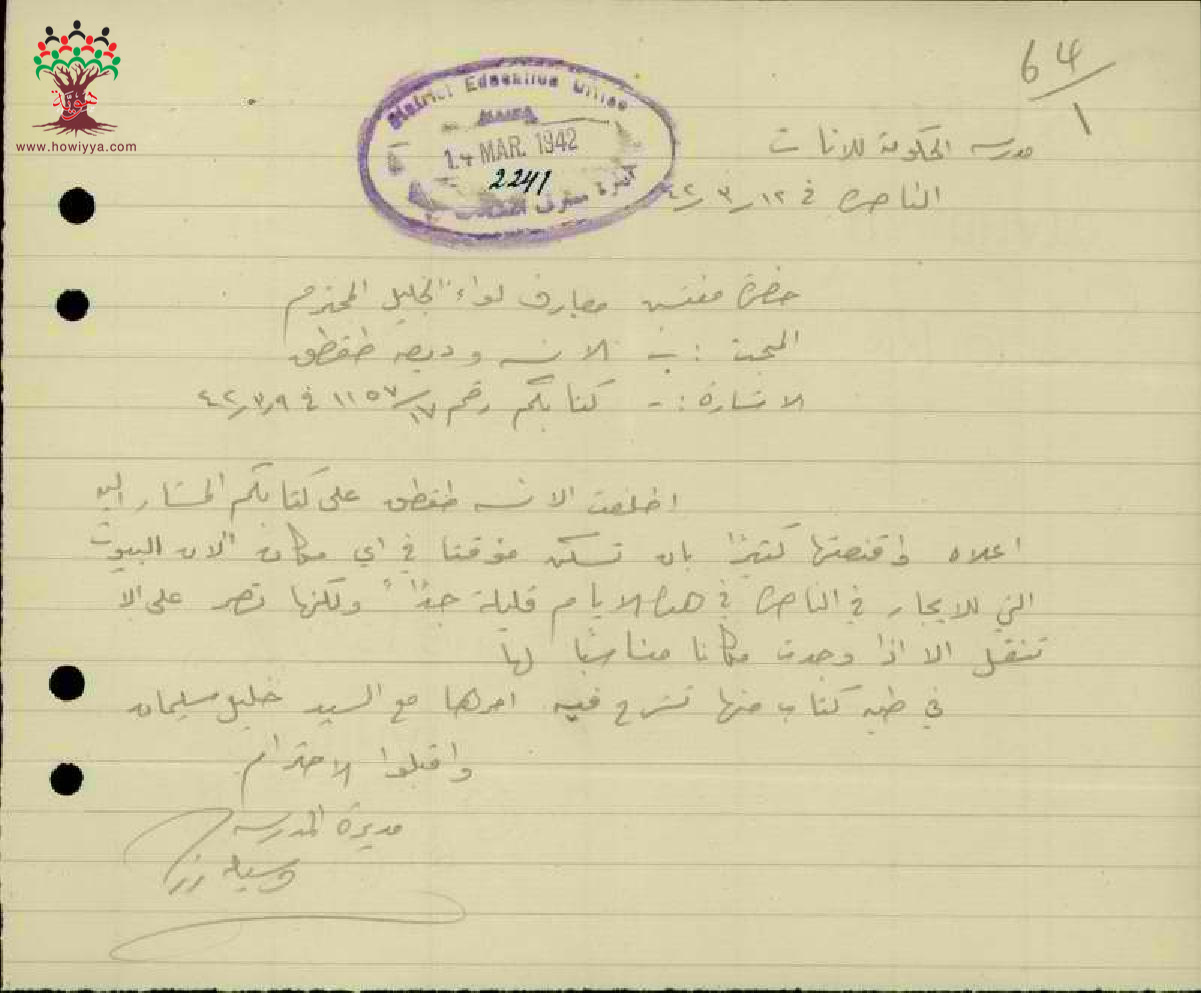 هوية
www.howiyya.com
64/1
District Education Office
HAIFA
14 MAR. 1942
2241
دائرة معارف
مدرسة الحكومة للانات
الناصرة في ١٢/٣/٤٢
حضرة مفتش معارف لواء الجليل المحترم
المبحث :- الانسه وديعه طقطق
الاشارة :- كتابكم رقم ١١٥٧/١٧ في ٤٢/٣/٩
اطلعت الانسه طقطق على كتابكم المشار اليه
اعلاه واقنعتها كثيرًا بان تسكن موقتا في اي مكان الان البيوت
التي للايجار في الناصرة في هذه الايام قليلة جدًا ولكنها تصر على الا
تنقل الا اذا وجدت مكانا مناسبًا لها
في طيه كتاب منها تشرح فيه امرها مع السيد خليل سليمان
واقبلوا الاحترام
مديرة المدرسه